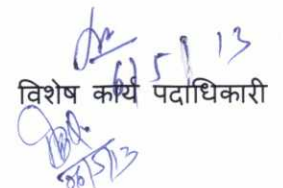 6/5/13
विशेष कार्य पदाधिकारी
06/5/13